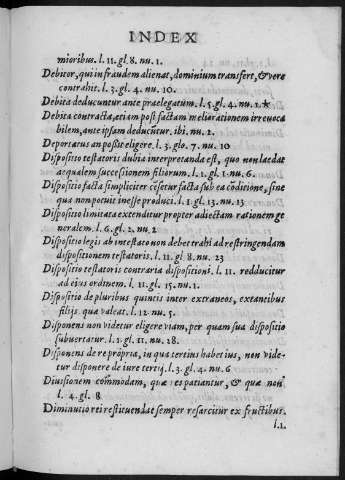 INDEX
mioribus. l. 11. gl. 8. nu. 1.
Debitor, qui in fraudem alienat, dominium transfert, & vere
contrahit. l. 3. gl. 4. nu. 10.
Debita deducuntur ante praelegatum. l. 5. gl. 4. nu. 1. *
Debita contracta, etiam post factam meliorationem irrevoca
bilem, ante ipsam deducuntur. ibi. nu. 2.
Deportatus an possit eligere. l. 3. glo. 7. nu. 10
Dispositio testatoris dubia interpretanda est, quo non laedat
aequalem successionem filiorum. l. 1. gl. 1. nu. 6.
Dispositio facta simpliciter cẽsetur facta sub ea cõditione, sine
qua non potuit inesse produci. l. 1. gl. 13. nu. 13
Dispositio limitata extenditur propter adiectam rationem ge
neralem. l. 6. gl. 2. nu. 2
Dispositio legis ab intestato non debet trahi ad restringendam
dispositionem testatoris. l. 11. gl. 8. nu. 23
Dispositio testatoris contraria dispositioni. l. 11. redducitur
ad eius ordinem. l. 11. gl. 15. nu. 1.
Dispositio de pluribus quintis inter extraneos, extantibus
filijs. qua valeat. l. 12. nu. 5.
Disponens non videtur eligere viam, per quam sua dispositio
subuertatur. l. 1. gl. 11. nu. 28.
Disponens de re propria, in qua tertius habet ius, non vide-
tur disponere de iure tertij. l. 3. gl. 4. nu. 6
Diuisionem commodam, quae res patiantur, & quae non
l. 4. gl. 8
Diminutio rei restituendae semper resarcitur ex fructibus.
l. 1.